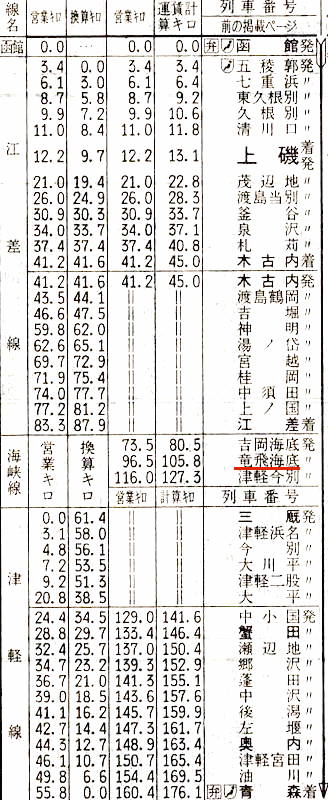 線名 営業キロ 換算キロ 営業キロ 運賃計算キロ 列車番号
前の掲載ページ
函館 0.0 … 0.0 0.0 弁 函館発
江差線
3.4 0.0 3.4 3.4 五稜郭発
6.1 3.0 6.1 6.4 七重浜〃
8.7 5.8 8.7 9.2 東久根別〃
9.9 7.2 9.9 10.6 久根別〃
11.0 8.4 11.0 11.8 清川口〃
12.2 9.7 12.2 13.1 上磯着発
21.0 19.4 21.0 22.8 茂辺地〃
26.0 24.9 26.0 28.3 渡島当別〃
30.9 30.3 30.9 33.7 釜谷〃
34.0 33.7 34.0 37.1 泉沢〃
37.4 37.4 37.4 40.8 札苅〃
41.2 41.6 41.2 45.0 木古内着
41.2 41.6 41.2 45.0 木古内発
43.5 44.1 ‖ ‖ 渡島鶴岡〃
46.6 47.5 ‖ ‖ 吉堀〃
59.8 62.0 ‖ ‖ 神明〃
62.6 65.1 ‖ ‖ 湯ノ岱〃
69.7 72.9 ‖ ‖ 宮越〃
71.9 75.4 ‖ ‖ 桂岡〃
74.0 77.7 ‖ ‖ 中須田〃
77.2 81.2 ‖ ‖ 上ノ国〃
83.3 87.9 ‖ ‖ 江差着
海峡線 営業キロ 換算キロ
73.5 80.5 吉岡海底発
96.5 105.8 竜飛海底〃
116.0 127.3 津軽今別〃
営業キロ 計算キロ 列車番号
津軽線
0.0 61.4 ‖ ‖ 三厩発
3.1 58.0 ‖ ‖ 津軽浜名〃
4.8 56.1 ‖ ‖ 今別〃
7.2 53.5 ‖ ‖ 大川平〃
9.2 51.3 ‖ ‖ 津軽二股〃
20.8 38.5 ‖ ‖ 大平〃
24.4 34.5 129.0 141.6 中小国発
28.8 29.7 133.4 146.4 蟹田〃
32.4 25.7 137.0 150.4 瀬辺地〃
34.7 23.2 139.3 152.9 郷沢〃
36.7 21.0 141.3 155.1 蓬田〃
39.0 18.5 143.6 157.6 中沢〃
41.1 16.2 145.7 159.9 後潟〃
42.7 14.4 147.3 161.7 左堰〃
44.3 12.7 148.9 163.4 奥内〃
46.1 10.7 150.7 165.4 津軽宮田〃
49.8 6.6 154.4 169.5 油川〃
55.8 0.0 160.4 176.1 弁 青森着